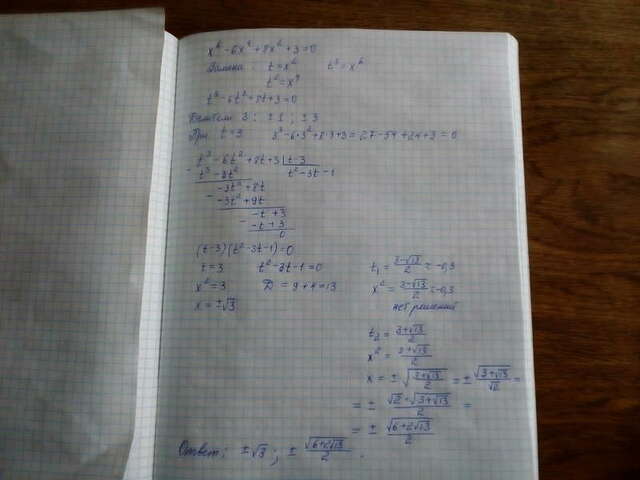 x⁶ - 6x⁴ + 8x² + 3 = 0
Замена: t = x² t³ = x⁶
t² = x⁴
t³ - 6t² + 8t + 3 = 0
Делители 3: ±1; ±3
При t = 3 3³ - 6·3² + 8·3 + 3 = 27 - 54 + 24 + 3 = 0
t³ - 6t² + 8t + 3 | t - 3
t³ - 3t² t² - 3t - 1
-3t² + 8t
-3t² + 9t
-t + 3
-t + 3
0
(t-3)(t² - 3t - 1) = 0
t = 3 t² - 3t - 1 = 0
x² = 3 D = 9 + 4 = 13
x = ±√3
t₁ = (3-√13)/2 ≈ -0,3
x² = (3-√13)/2 ≈ -0,3
нет решений
t₂ = (3+√13)/2
x² = (3+√13)/2
x = ±√((3+√13)/2) = ±√(3+√13)/√2 =
= ± √2·√(3+√13)/2 =
= ± √(6+2√13)/2
Ответ: ±√3; ± √(6+2√13)/2.